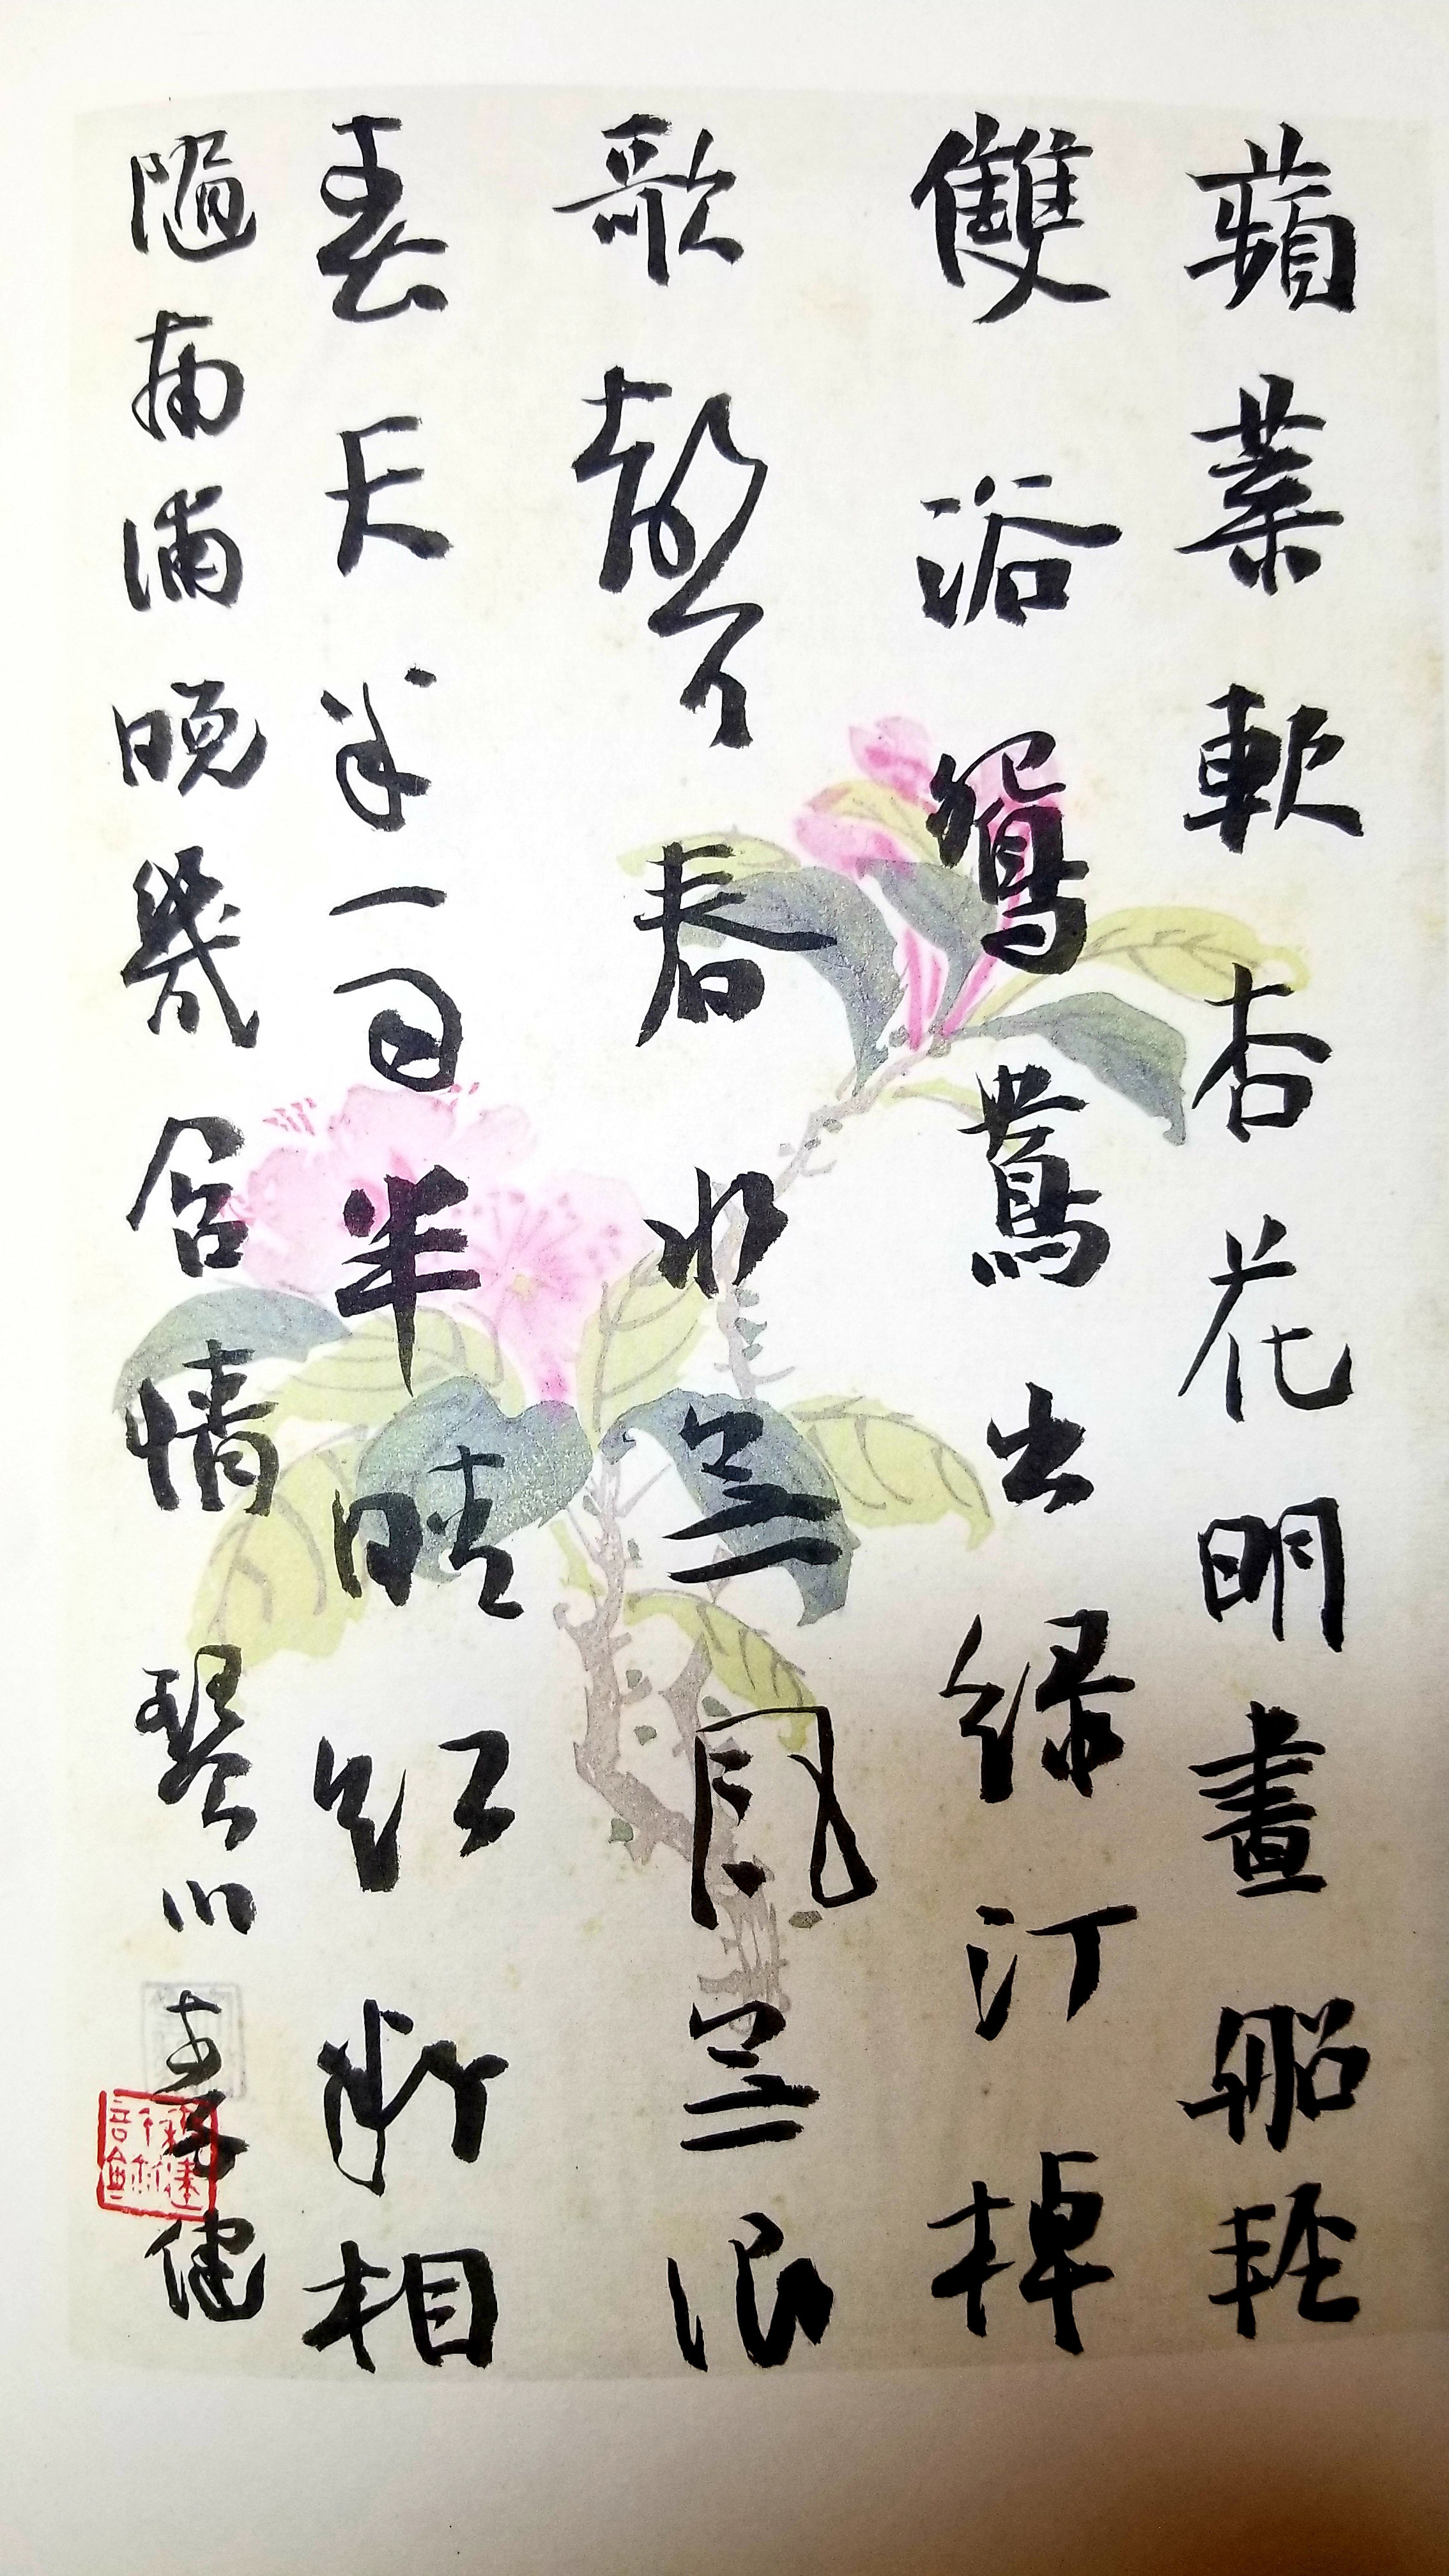 蘋葉軟杏花明畫船輕
雙浴鴛鴦出綠汀棹
歌聲春水無風無浪
春天半雨半晴紅粉相
隨南浦晚幾含情 琴川 健